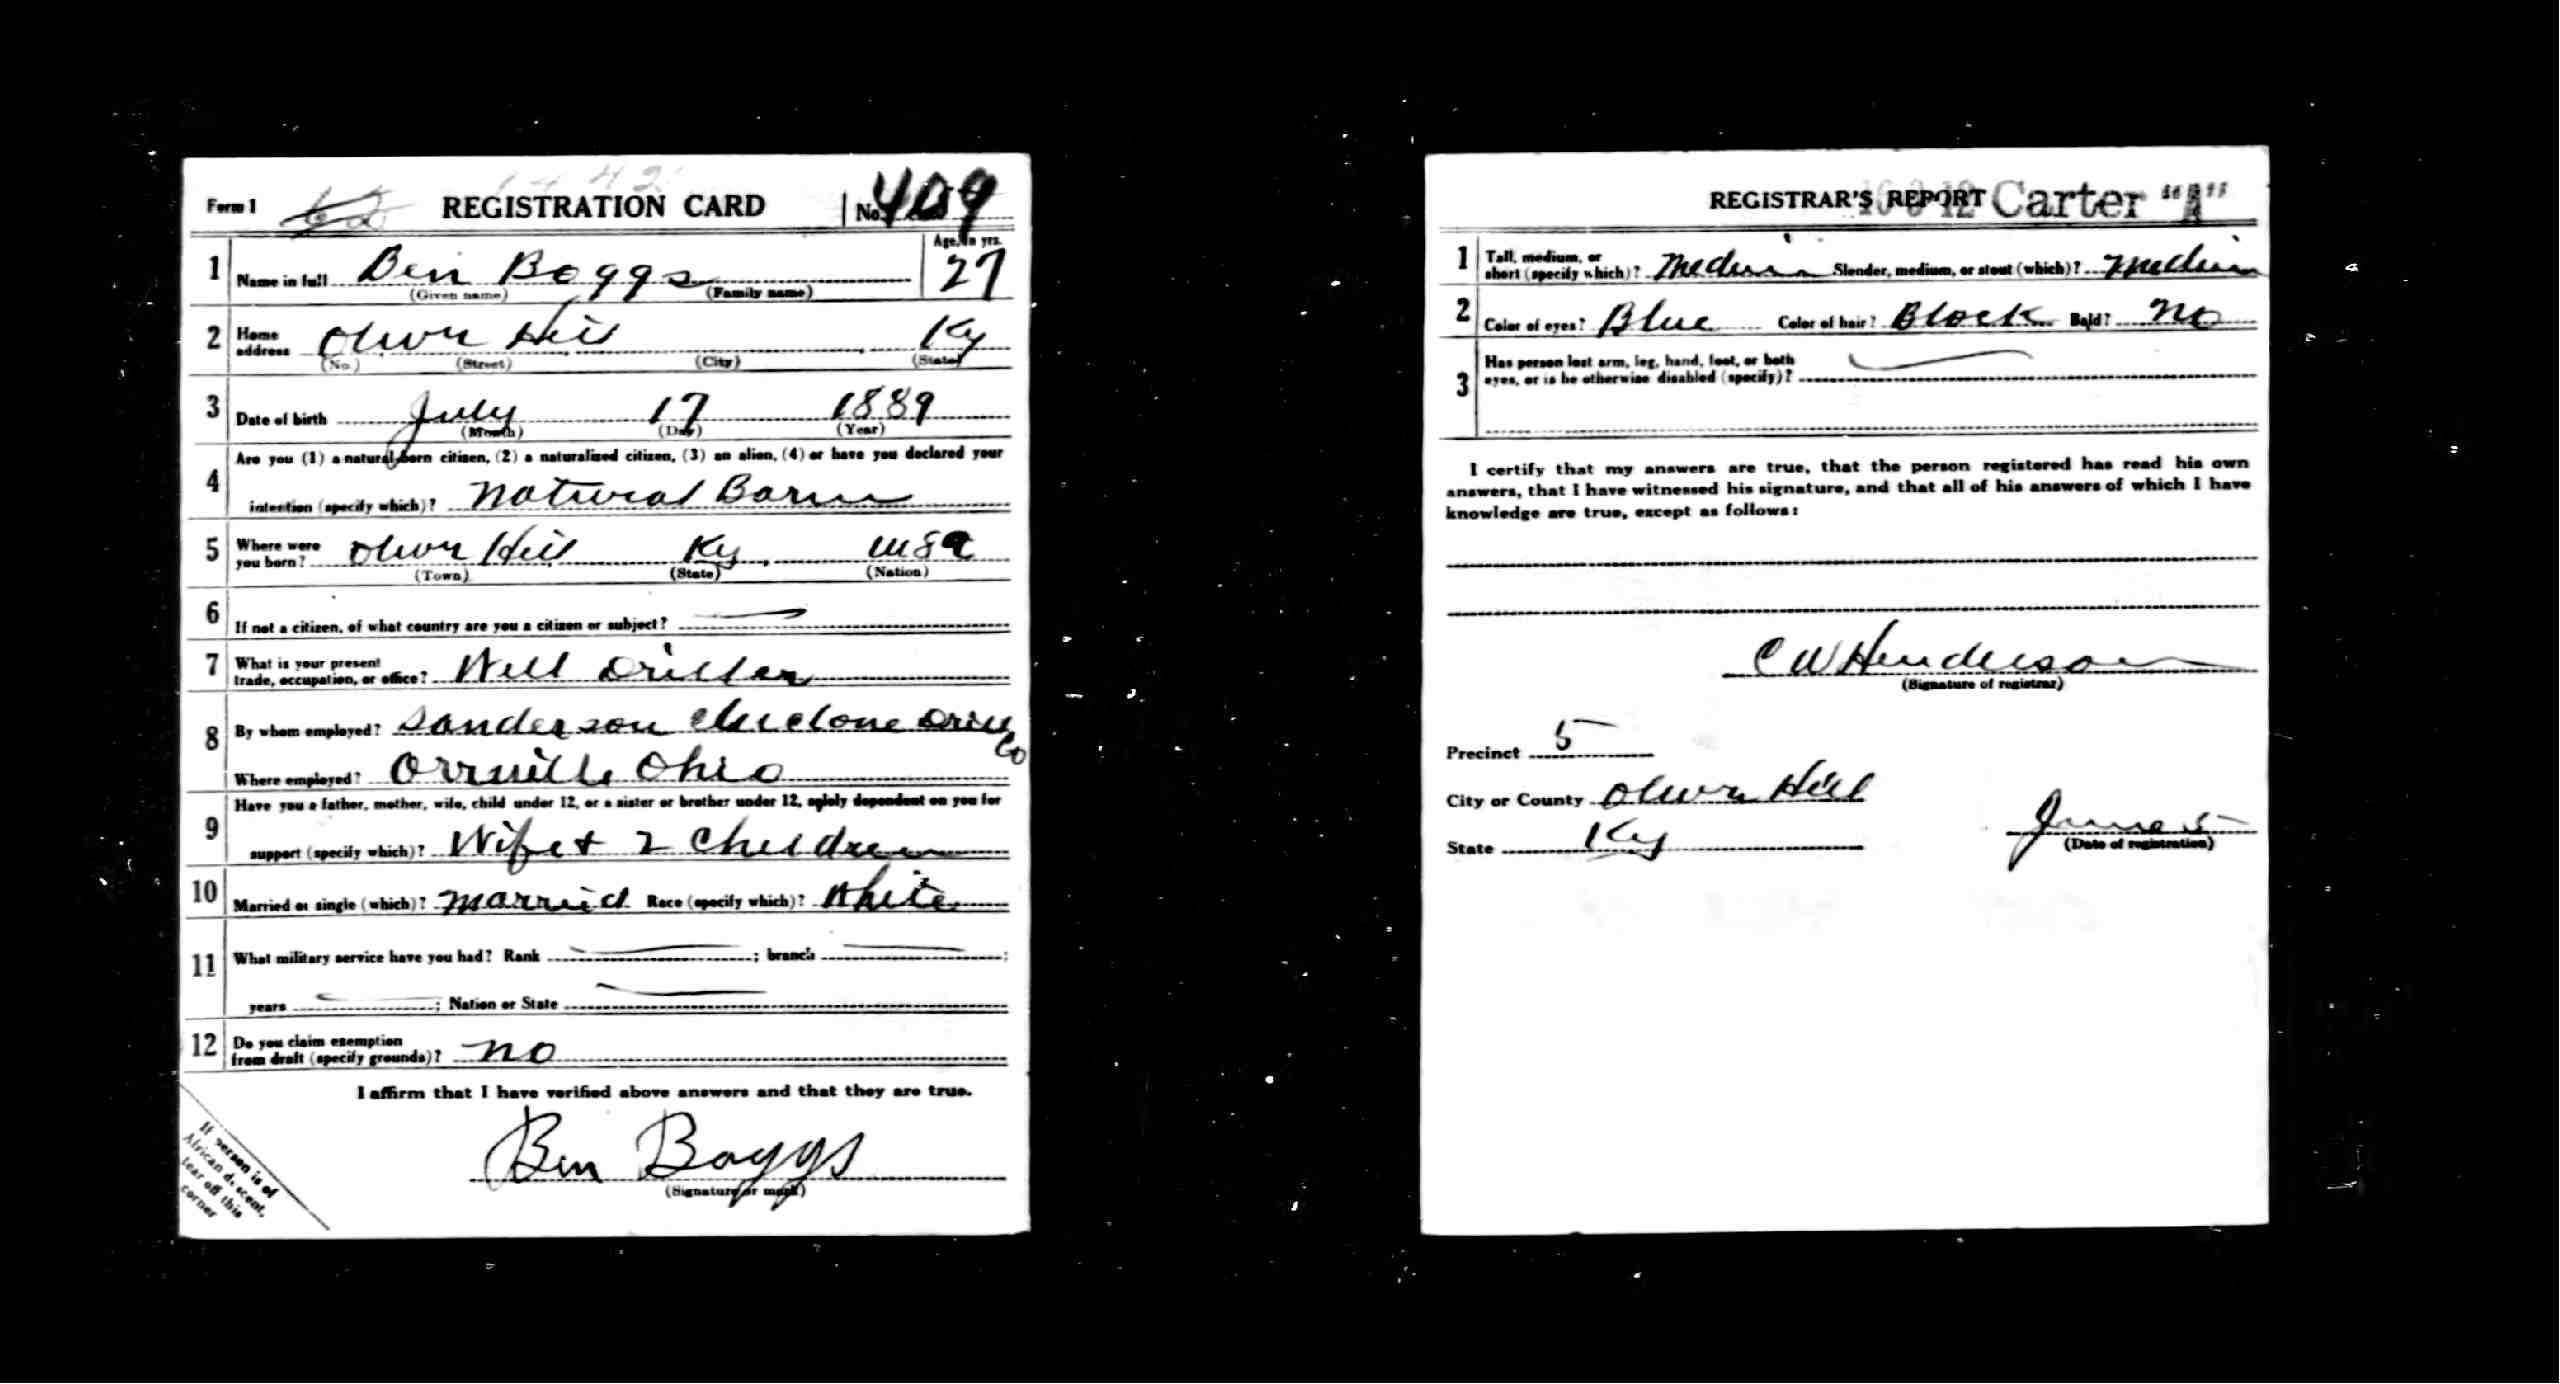 Form 1 REGISTRATION CARD No. 409
1 Name in full Ben Boggs Age, in yrs. 27
(Given name) (Family name)
2 Home address Olive Hill Ky
(No.) (Street) (City) (State)
3 Date of birth July 17 1889
(Month) (Day) (Year)
4 Are you (1) a natural-born citizen, (2) a naturalized citizen, (3) an alien, (4) or have you declared your
intention (specify which)? Natural Born
5 Where were you born? Olive Hill Ky USA
(Town) (State) (Nation)
6 If not a citizen, of what country are you a citizen or subject?
7 What is your present trade, occupation, or office? Well Driller
8 By whom employed? Sanderson Cyclone Drill Co
Where employed? Orrville Ohio
9 Have you a father, mother, wife, child under 12, or a sister or brother under 12, solely dependent on you for
support (specify which)? Wife + 2 Children
10 Married or single (which)? Married Race (specify which)? White
11 What military service have you had? Rank ; branch ;
years ; Nation or State
12 Do you claim exemption from draft (specify grounds)? No
I affirm that I have verified above answers and that they are true.
Ben Boggs
(Signature or mark)
If person is of
African descent,
tear off this
corner
REGISTRAR'S REPORT Carter "A"
1 Tall, medium, or short (specify which)? Medium Slender, medium, or stout (which)? Medium
2 Color of eyes? Blue Color of hair? Black Bald? No
3 Has person lost arm, leg, hand, foot, or both
eyes, or is he otherwise disabled (specify)?
I certify that my answers are true, that the person registered has read his own
answers, that I have witnessed his signature, and that all of his answers of which I have
knowledge are true, except as follows:
C W Henderson
(Signature of registrar)
Precinct 5
City or County Olive Hill
State Ky
June 5
(Date of registration)